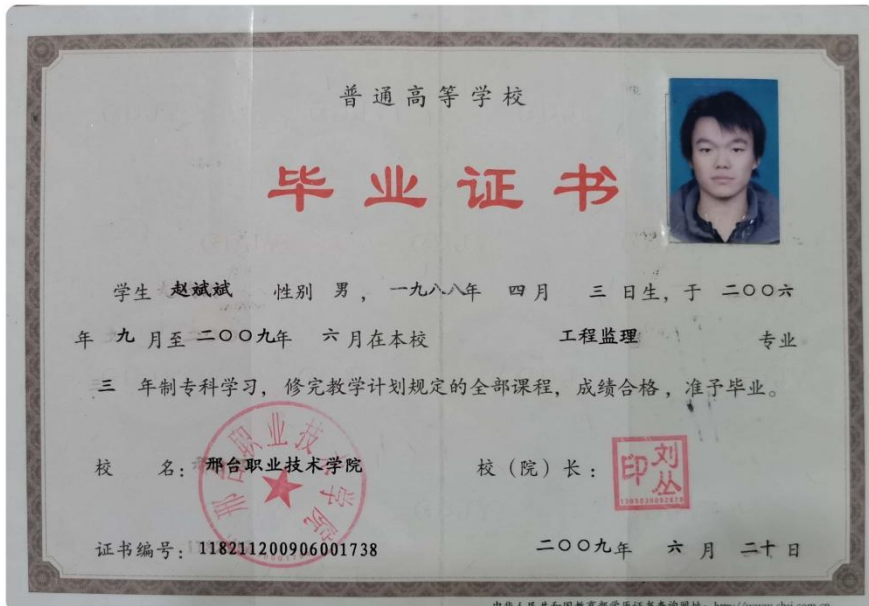 普通高等学校
毕业证书
学生 赵斌斌 性别 男 ，一九八八年 四月 三日生，于 二〇〇六
年 九 月至 二〇〇九年 六 月在本校 工程监理 专业
三 年制专科学习，修完教学计划规定的全部课程，成绩合格，准予毕业。
校 名：邢台职业技术学院
邢台职业技术学院
校（院）长：
刘丛印
证书编号：118211200906001738
二〇〇九年 六 月 二十日